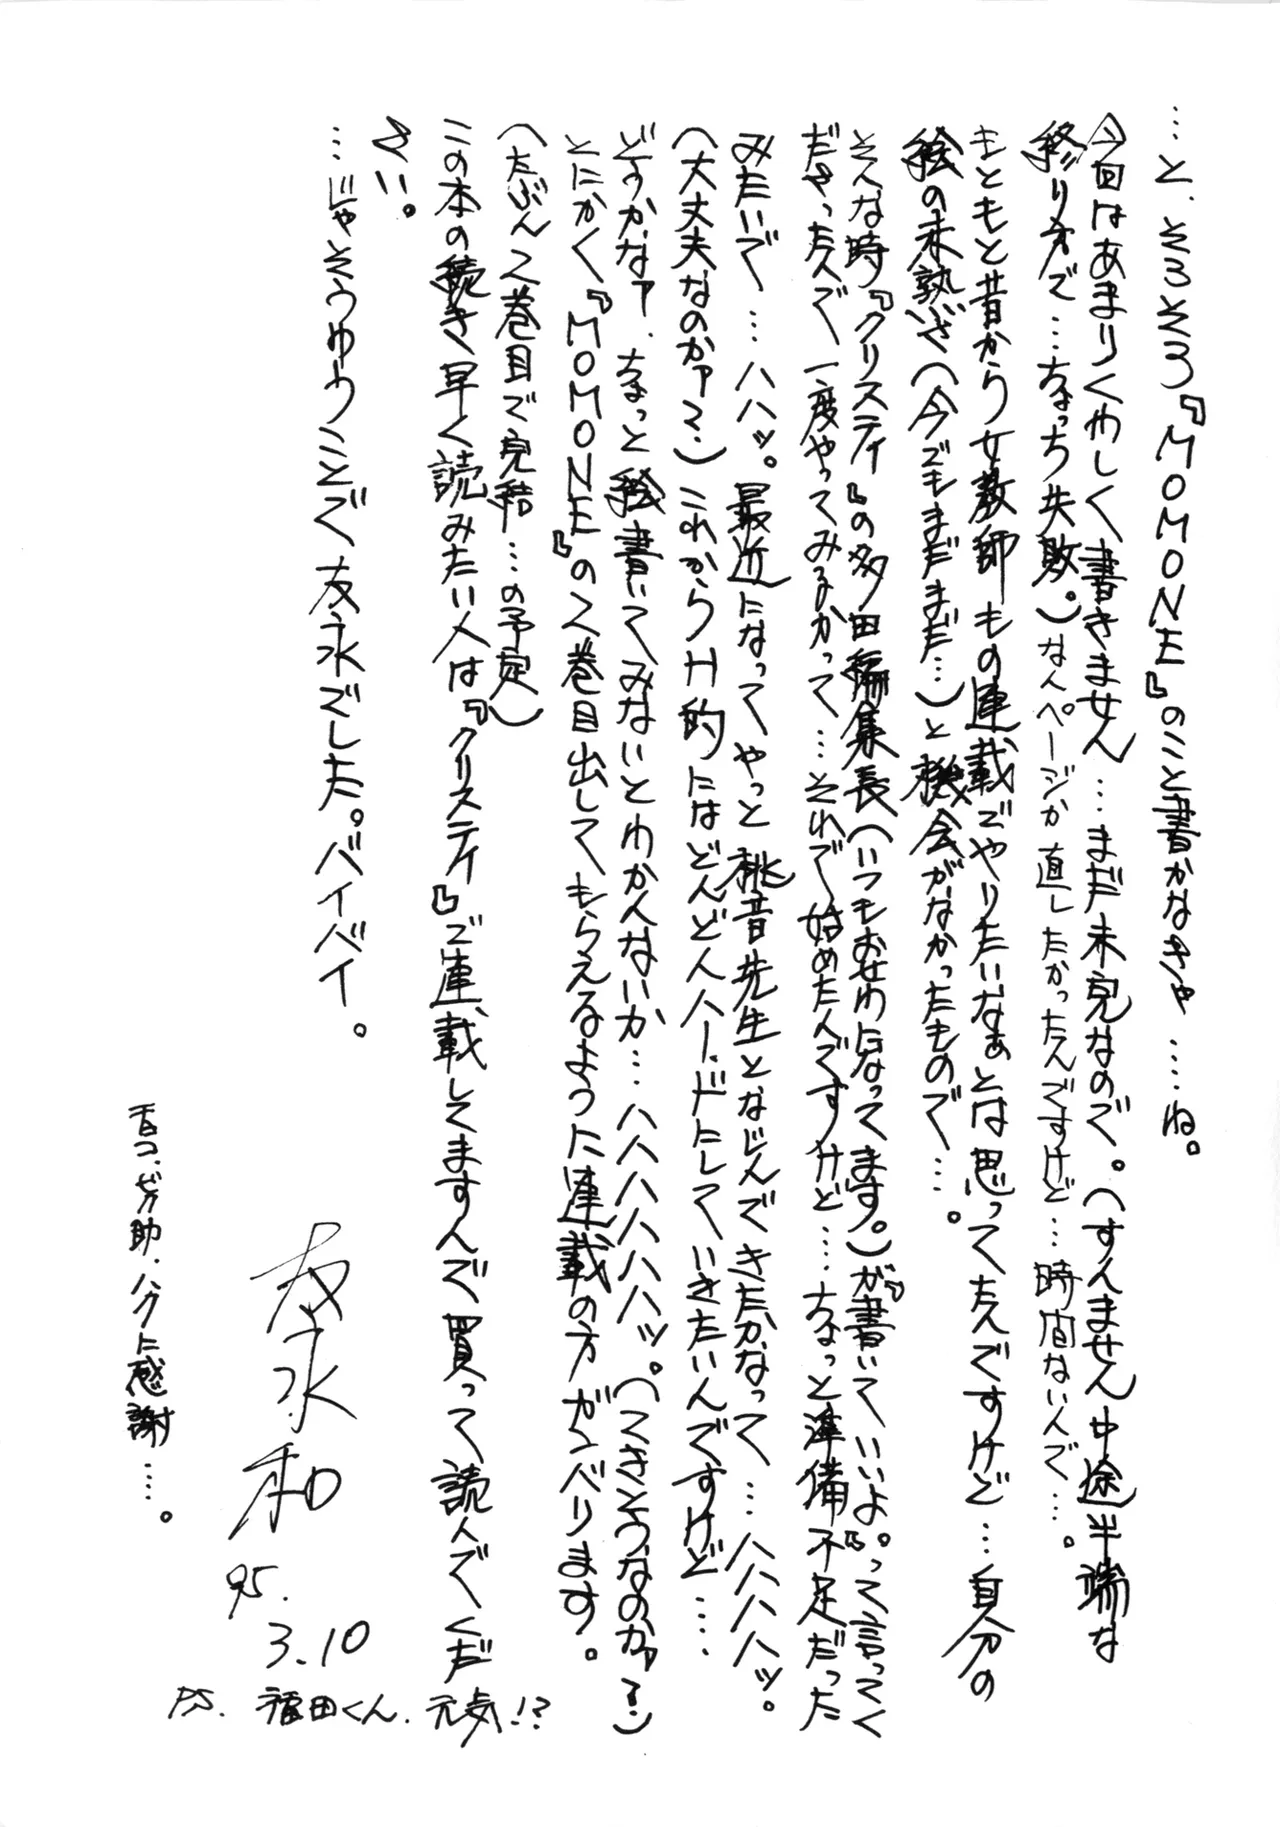 …と、そろそろ『MOMONE』のこと書かなきゃ……ね。
今回はあまりくわしく書きません…まだ未完なので。(すんません中途半端な
終り方で…ちょっち失敗。)なんページか直したかったんですけど…時間ないんで…。
もともと昔から女教師もの連載でやりたいなぁとは思ってたんですけど…自分の
絵の未熟さ(今でもまだまだ…)と機会がなかったもので…。
そんな時『クリスティ』の多田編集長(いつもおせわになってます。)が『書いていいよ。』って言ってく
ださったんで、一度やってみるかって…それで始めたんですけど……ちょっと準備不足だった
みたいで…ハハッ。最近になってやっと桃音先生となじんできたかなって…ハハハハッ。
(大丈夫なのかァ?)これからH的にはどんどんハードにしていきたいんですけど……
どうかなァ、ちょっと絵書いてみないとわかんないか…ハハハハハハッ。(できそうなのかァ?)
とにかく『MOMONE』の2巻目出してもらえるように連載の方ガンバります。
(たぶん2巻目で完結…の予定)
この本の続き早く読みたい人は『クリスティ』で連載してますんで買って読んでくだ
さい。
…じゃそうゆうことで友永でした。バイバイ。
友永和
95.
3.10
P.S. 福田くん、元気!?
助、ハクに感謝……。